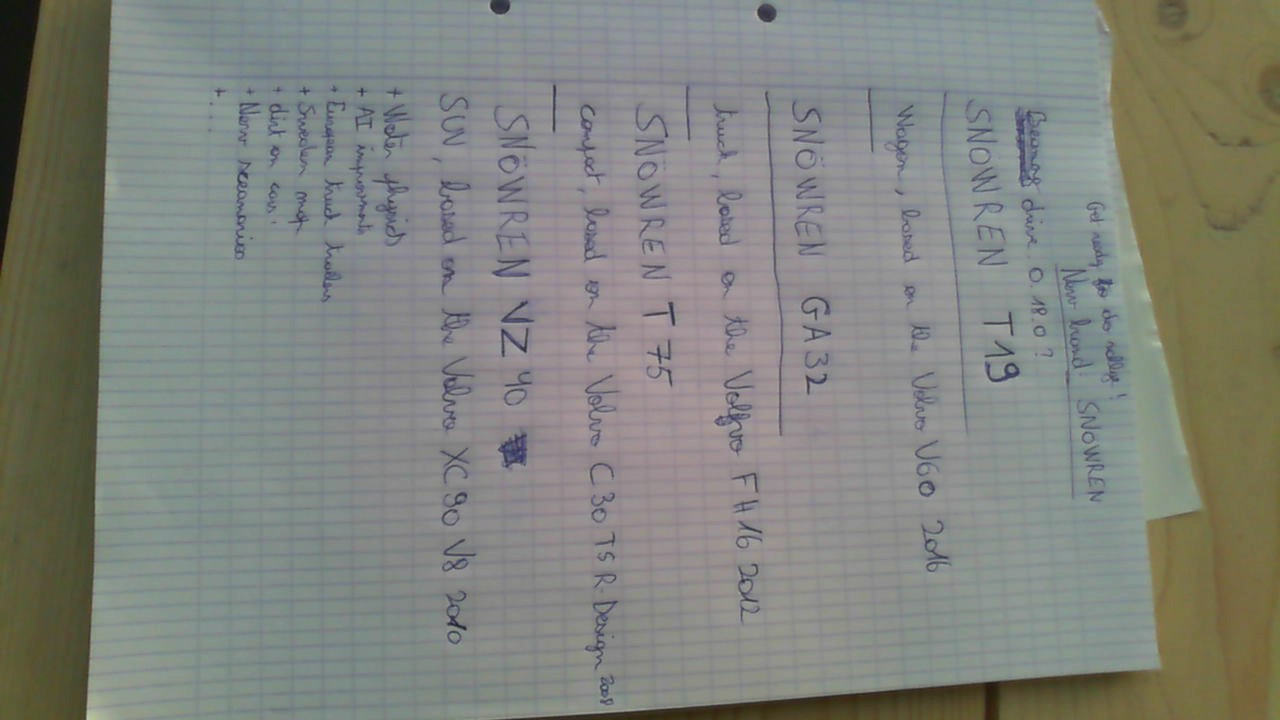 Get ready to do rallye!
New brand! SNOWREN
Beamng drive 0.18.0?
SNOWREN T19
Wagon, based on the Volvo V60 2016
SNÖWREN GA32
truck, based on the Volvo FH16 2012
SNÖWREN T75
compact, based on the Volvo C30 T5 R-Design 2008
SNÖWREN VZ40
SUV, based on the Volvo XC90 V8 2010
+ Water physics
+ AI improvments
+ European truck trailers
+ Sweden map
+ dirt on cars!
+ New scenarios
+ ....